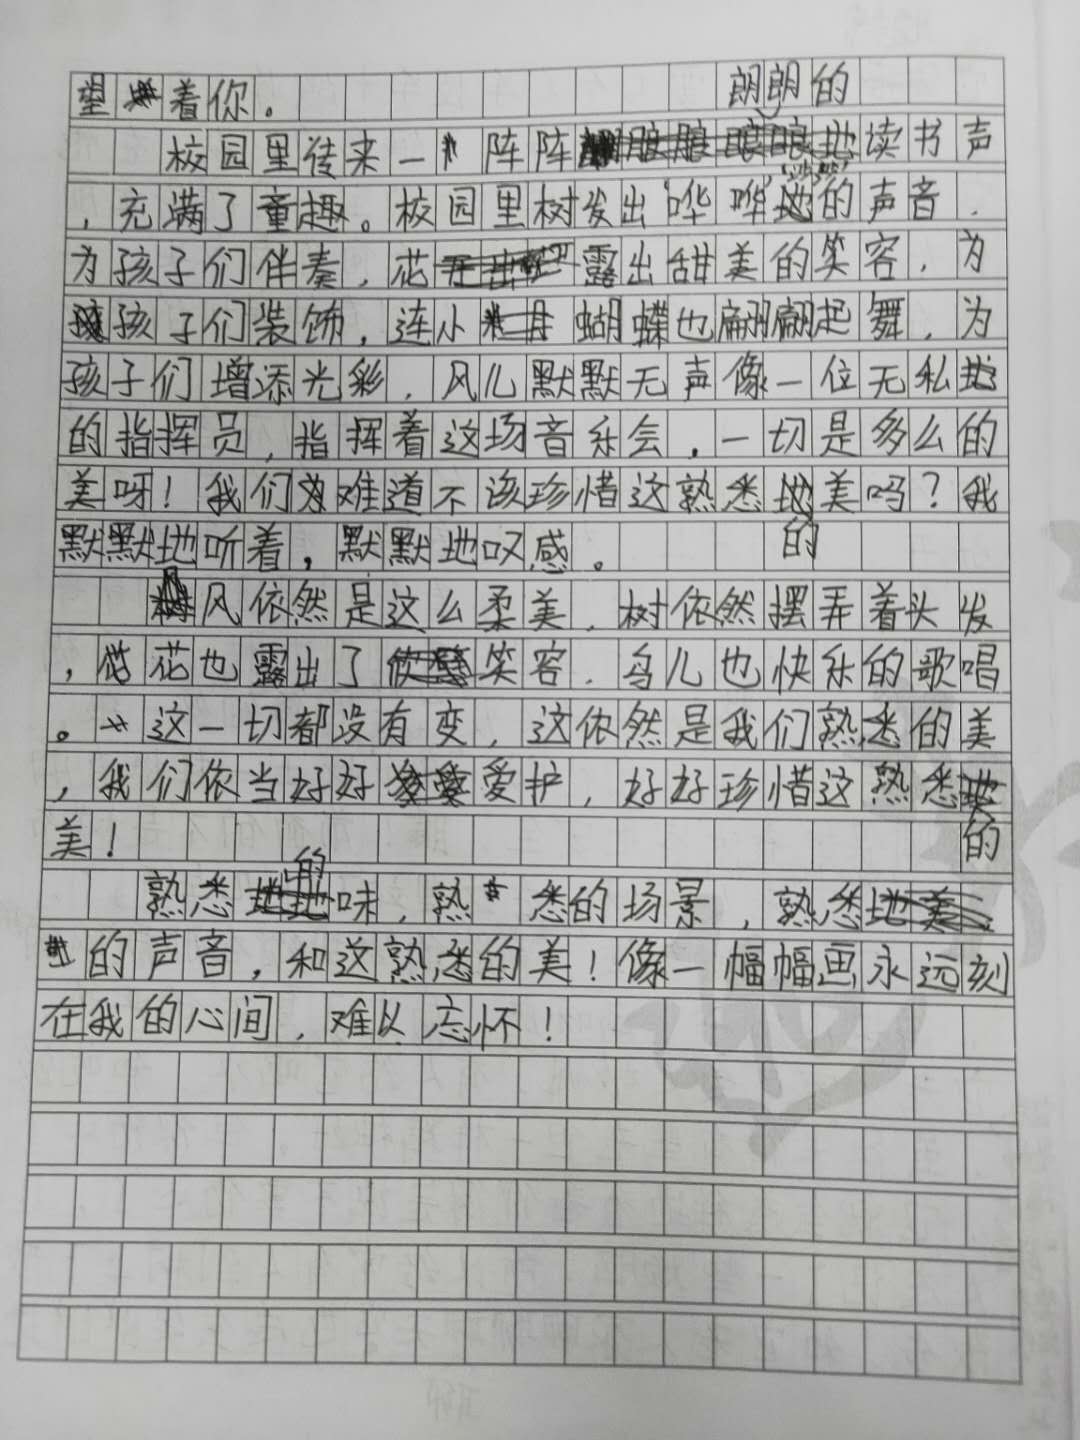 望着你。
朗朗的
校园里传来一阵阵读书声
，充满了童趣。校园里树发出“哗哗”的声音，
为孩子们伴奏，花露出甜美的笑容，为
孩子们装饰，连小蝴蝶也翩翩起舞，为
孩子们增添光彩，风儿默默无声像一位无私
的指挥员，指挥着这场音乐会，一切是多么的
美呀！我们难道不该珍惜这熟悉美吗？我
的
默默地听着，默默地叹感。
风依然是这么柔美，树依然摆弄着头发
，花也露出了笑容，鸟儿也快乐的歌唱
。这一切都没有变，这依然是我们熟悉的美
，我们依当好好爱护，好好珍惜这熟悉
的
美！
的
熟悉味，熟悉的场景，熟悉
的声音，和这熟悉的美！像一幅幅画永远刻
在我的心间，难以忘怀！